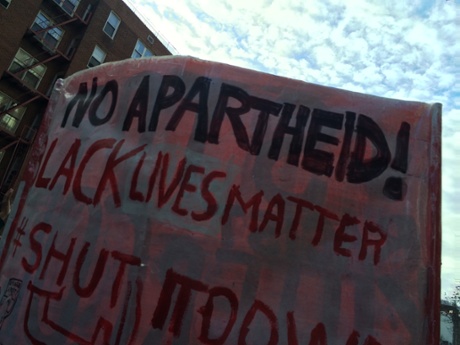 NO APARTHEID!
LACK LIVES MATTER
#SHUT IT DOWN